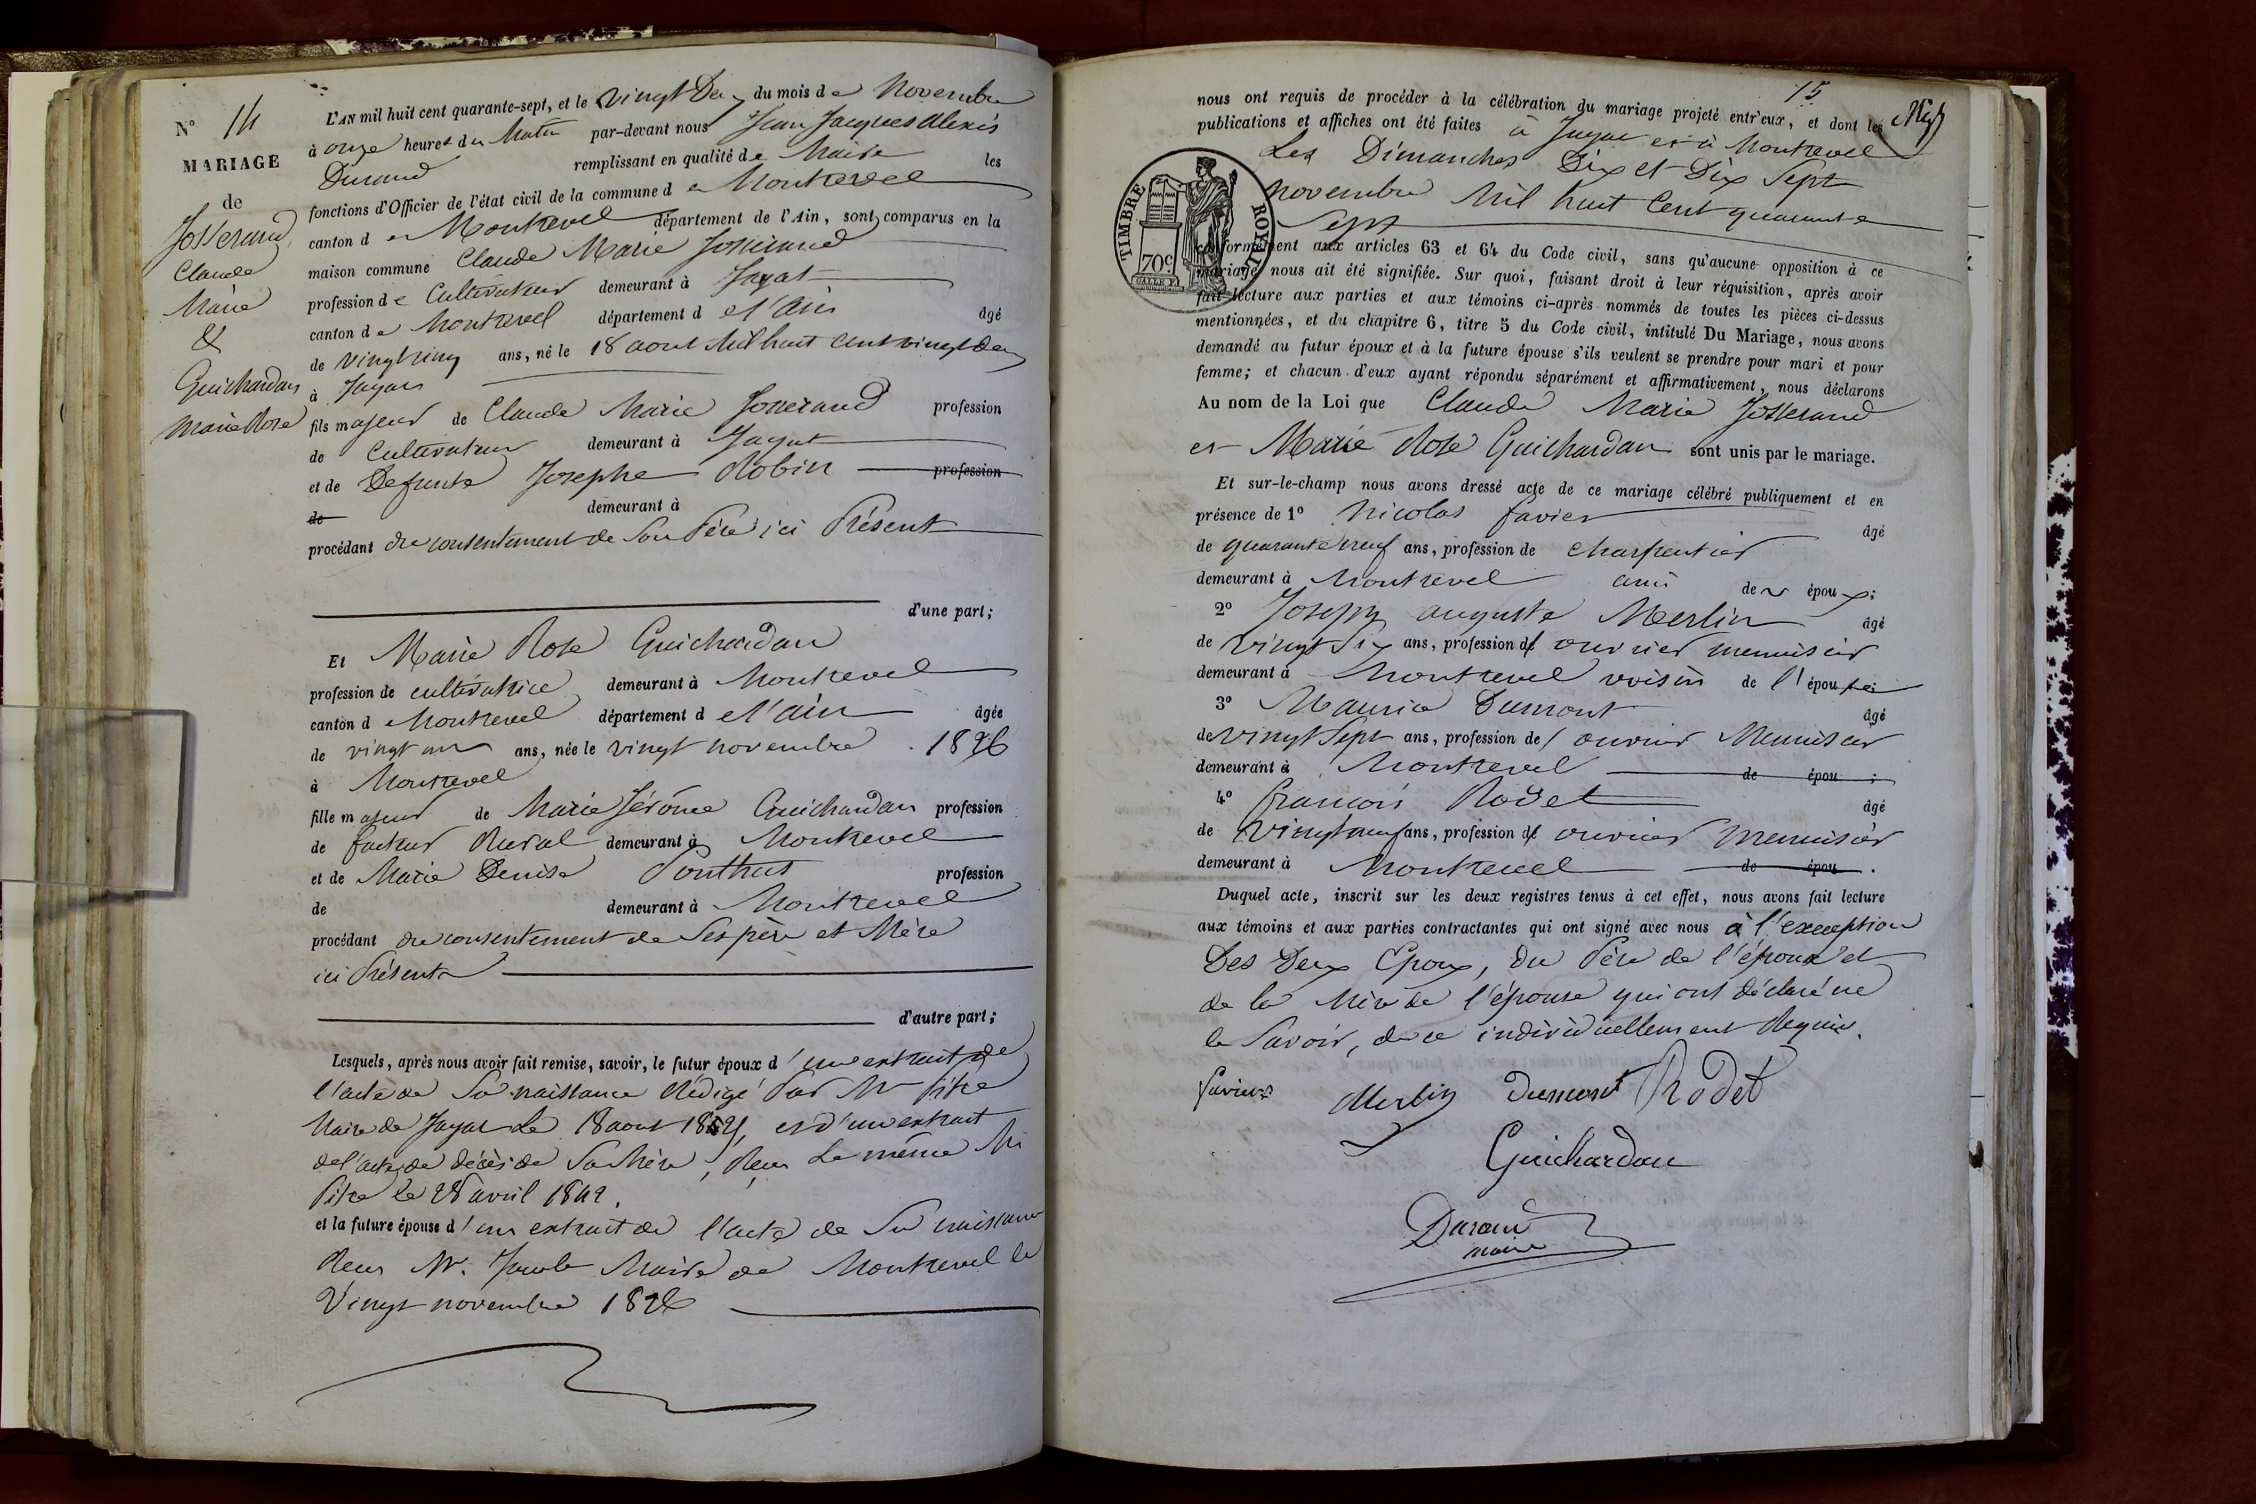 N° 14
MARIAGE
de
Josserand
Claude
Marie
&
Guichardan
Marie Rose
L'AN mil huit cent quarante-sept, et le vingt Deux du mois de Novembre
à onze heures du Matin par-devant nous Jean Jacques Alexis
Durand remplissant en qualité de Maire les
fonctions d'Officier de l'état civil de la commune de Montrevel
canton de Montrevel département de l'Ain, sont comparus en la
maison commune Claude Marie Josserand
profession de Cultivateur demeurant à Jayat
canton de Montrevel département de l'ain âgé
de vingt cinq ans, né le 18 aout Mil huit cent vingt deux
à Jayat
fils majeur de Claude Marie Josserand profession
de Cultivateur demeurant à Jayat
et de Defunte Josephe Robin profession
de demeurant à
procédant du consentement de Son Père ici Présent
d'une part;
Et Marie Rose Guichardan
profession de cultivatrice demeurant à Montrevel
canton de Montrevel département de l'ain âgée
de vingt un ans, née le vingt novembre 1826
à Montrevel
fille majeur de Marie Jérôme Guichardan profession
de facteur Rural demeurant à Montrevel
et de Marie Denise Ponthus profession
de demeurant à Montrevel
procédant du consentement de Ses père et Mère
ici Présents
d'autre part;
Lesquels, après nous avoir fait remise, savoir, le futur époux d'un extrait de
l'acte de Sa naissance Rédigé Par Mr Pitre
Maire de Jayat Le 18 aout et d'un extrait
de l'acte de décès de Sa Mère, Reçu Le même Mr
Pitre le 28 avril 1842.
et la future épouse d'un extrait de l'acte de Sa naissance
Reçu Mr. Maire de Montrevel le
Vingt novembre 1826
15
nous ont requis de procéder à la célébration du mariage projeté entr'eux, et dont les
publications et affiches ont été faites à Jayat et à Montrevel
Les Dimanches Dix et Dix Sept
novembre Mil huit Cent quarante
Sept
TIMBRE ROYAL
70c
conformément aux articles 63 et 64 du Code civil, sans qu'aucune opposition à ce
mariage nous ait été signifiée. Sur quoi, faisant droit à leur réquisition, après avoir
fait lecture aux parties et aux témoins ci-après nommés de toutes les pièces ci-dessus
mentionnées, et du chapitre 6, titre 5 du Code civil, intitulé Du Mariage, nous avons
demandé au futur époux et à la future épouse s'ils veulent se prendre pour mari et pour
femme; et chacun d'eux ayant répondu séparément et affirmativement, nous déclarons
Au nom de la Loi que Claude Marie Josserand
et Marie Rose Guichardan sont unis par le mariage.
Et sur-le-champ nous avons dressé acte de ce mariage célébré publiquement et en
présence de 1° Nicolas favier âgé
de quarante neuf ans, profession de charpentier
demeurant à Montrevel ami de époux;
2° Joseph auguste Merlin âgé
de vingt Six ans, profession d' ouvrier menuisier
demeurant à Montrevel voisin de l'épouse
3° Maurice Dumont âgé
de vingt Sept ans, profession de ouvrier Menuisier
demeurant à Montrevel de épou ;
4° francois Rodet âgé
de vingt neuf ans, profession d' ouvrier Menuisier
demeurant à Montrevel de épou .
Duquel acte, inscrit sur les deux registres tenus à cet effet, nous avons fait lecture
aux témoins et aux parties contractantes qui ont signé avec nous à l'exception
Des Deux Epoux, du Père de l'époux et
de la Mère de l'épouse qui ont déclaré ne
le Savoir, de ce individuellement Requis.
favier Merlin Dumont Rodet
Guichardan
Durand
maire